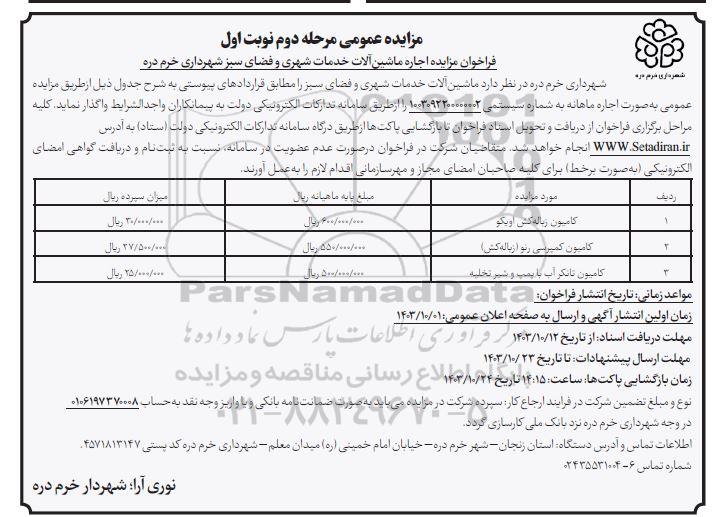 مزایده عمومی مرحله دوم نوبت اول
فراخوان مزایده اجاره ماشین‌آلات خدمات شهری و فضای سبز شهرداری خرم دره
شهرداری خرم دره
شهرداری خرم دره در نظر دارد ماشین‌آلات خدمات شهری و فضای سبز را مطابق قراردادهای پیوستی به شرح جدول ذیل ازطریق مزایده
عمومی به‌صورت اجاره ماهانه به شماره سیستمی ۱۰۰۳۰۹۲۲۰۰۰۰۰۰۲ را ازطریق سامانه تدارکات الکترونیکی دولت به پیمانکاران واجدالشرایط واگذار نماید. کلیه
مراحل برگزاری فراخوان از دریافت و تحویل اسناد فراخوان تا بازگشایی پاکت‌ها ازطریق درگاه سامانه تدارکات الکترونیکی دولت (ستاد) به آدرس
WWW.Setadiran.ir انجام خواهد شد. متقاضیان شرکت در فراخوان درصورت عدم عضویت در سامانه، نسبت به ثبت‌نام و دریافت گواهی امضای
الکترونیکی (به‌صورت برخط) برای کلیه صاحبان امضای مجاز و مهرسازمانی اقدام لازم را به‌عمل آورند.
ردیف مورد مزایده مبلغ پایه ماهیانه ریال میزان سپرده ریال
۱ کامیون زباله‌کش اویکو ۶۰۰/۰۰۰/۰۰۰ ریال ۳۰/۰۰۰/۰۰۰ ریال
۲ کامیون کمپرسی رنو (زباله‌کش) ۵۵۰/۰۰۰/۰۰۰ ریال ۲۷/۵۰۰/۰۰۰ ریال
۳ کامیون تانکر آب با پمپ و شیر تخلیه ۵۰۰/۰۰۰/۰۰۰ ریال ۲۵/۰۰۰/۰۰۰ ریال
مواعد زمانی: تاریخ انتشار فراخوان:
زمان اولین انتشار آگهی و ارسال به صفحه اعلان عمومی: ۱۴۰۳/۱۰/۰۱
مهلت دریافت اسناد: از تاریخ ۱۴۰۳/۱۰/۱۲
مهلت ارسال پیشنهادات: تا تاریخ ۲۳ /۱۴۰۳/۱۰
زمان بازگشایی پاکت‌ها: ساعت: ۱۴:۱۵ تاریخ ۱۴۰۳/۱۰/۲۴
نوع و مبلغ تضمین شرکت در فرایند ارجاع کار: سپرده شرکت در مزایده می‌باید به‌صورت ضمانت‌نامه بانکی و یا واریز وجه نقد به‌حساب ۰۱۰۶۱۹۷۳۷۰۰۰۸
در وجه شهرداری خرم دره نزد بانک ملی کارسازی گردد.
اطلاعات تماس و آدرس دستگاه: استان زنجان – شهر خرم دره – خیابان امام خمینی (ره) میدان معلم – شهرداری خرم دره کد پستی ۴۵۷۱۸۱۳۱۴۷.
شماره تماس ۶-۰۲۴۳۵۵۳۱۰۰۴
نوری آرا؛ شهردار خرم دره
ParsNamadData
مرکز فرآوری اطلاعات پارس نماد داده ها
پایگاه اطلاع رسانی مناقصه و مزایده
۰۲۱-۸۸۳۴۹۶۷۰-۵